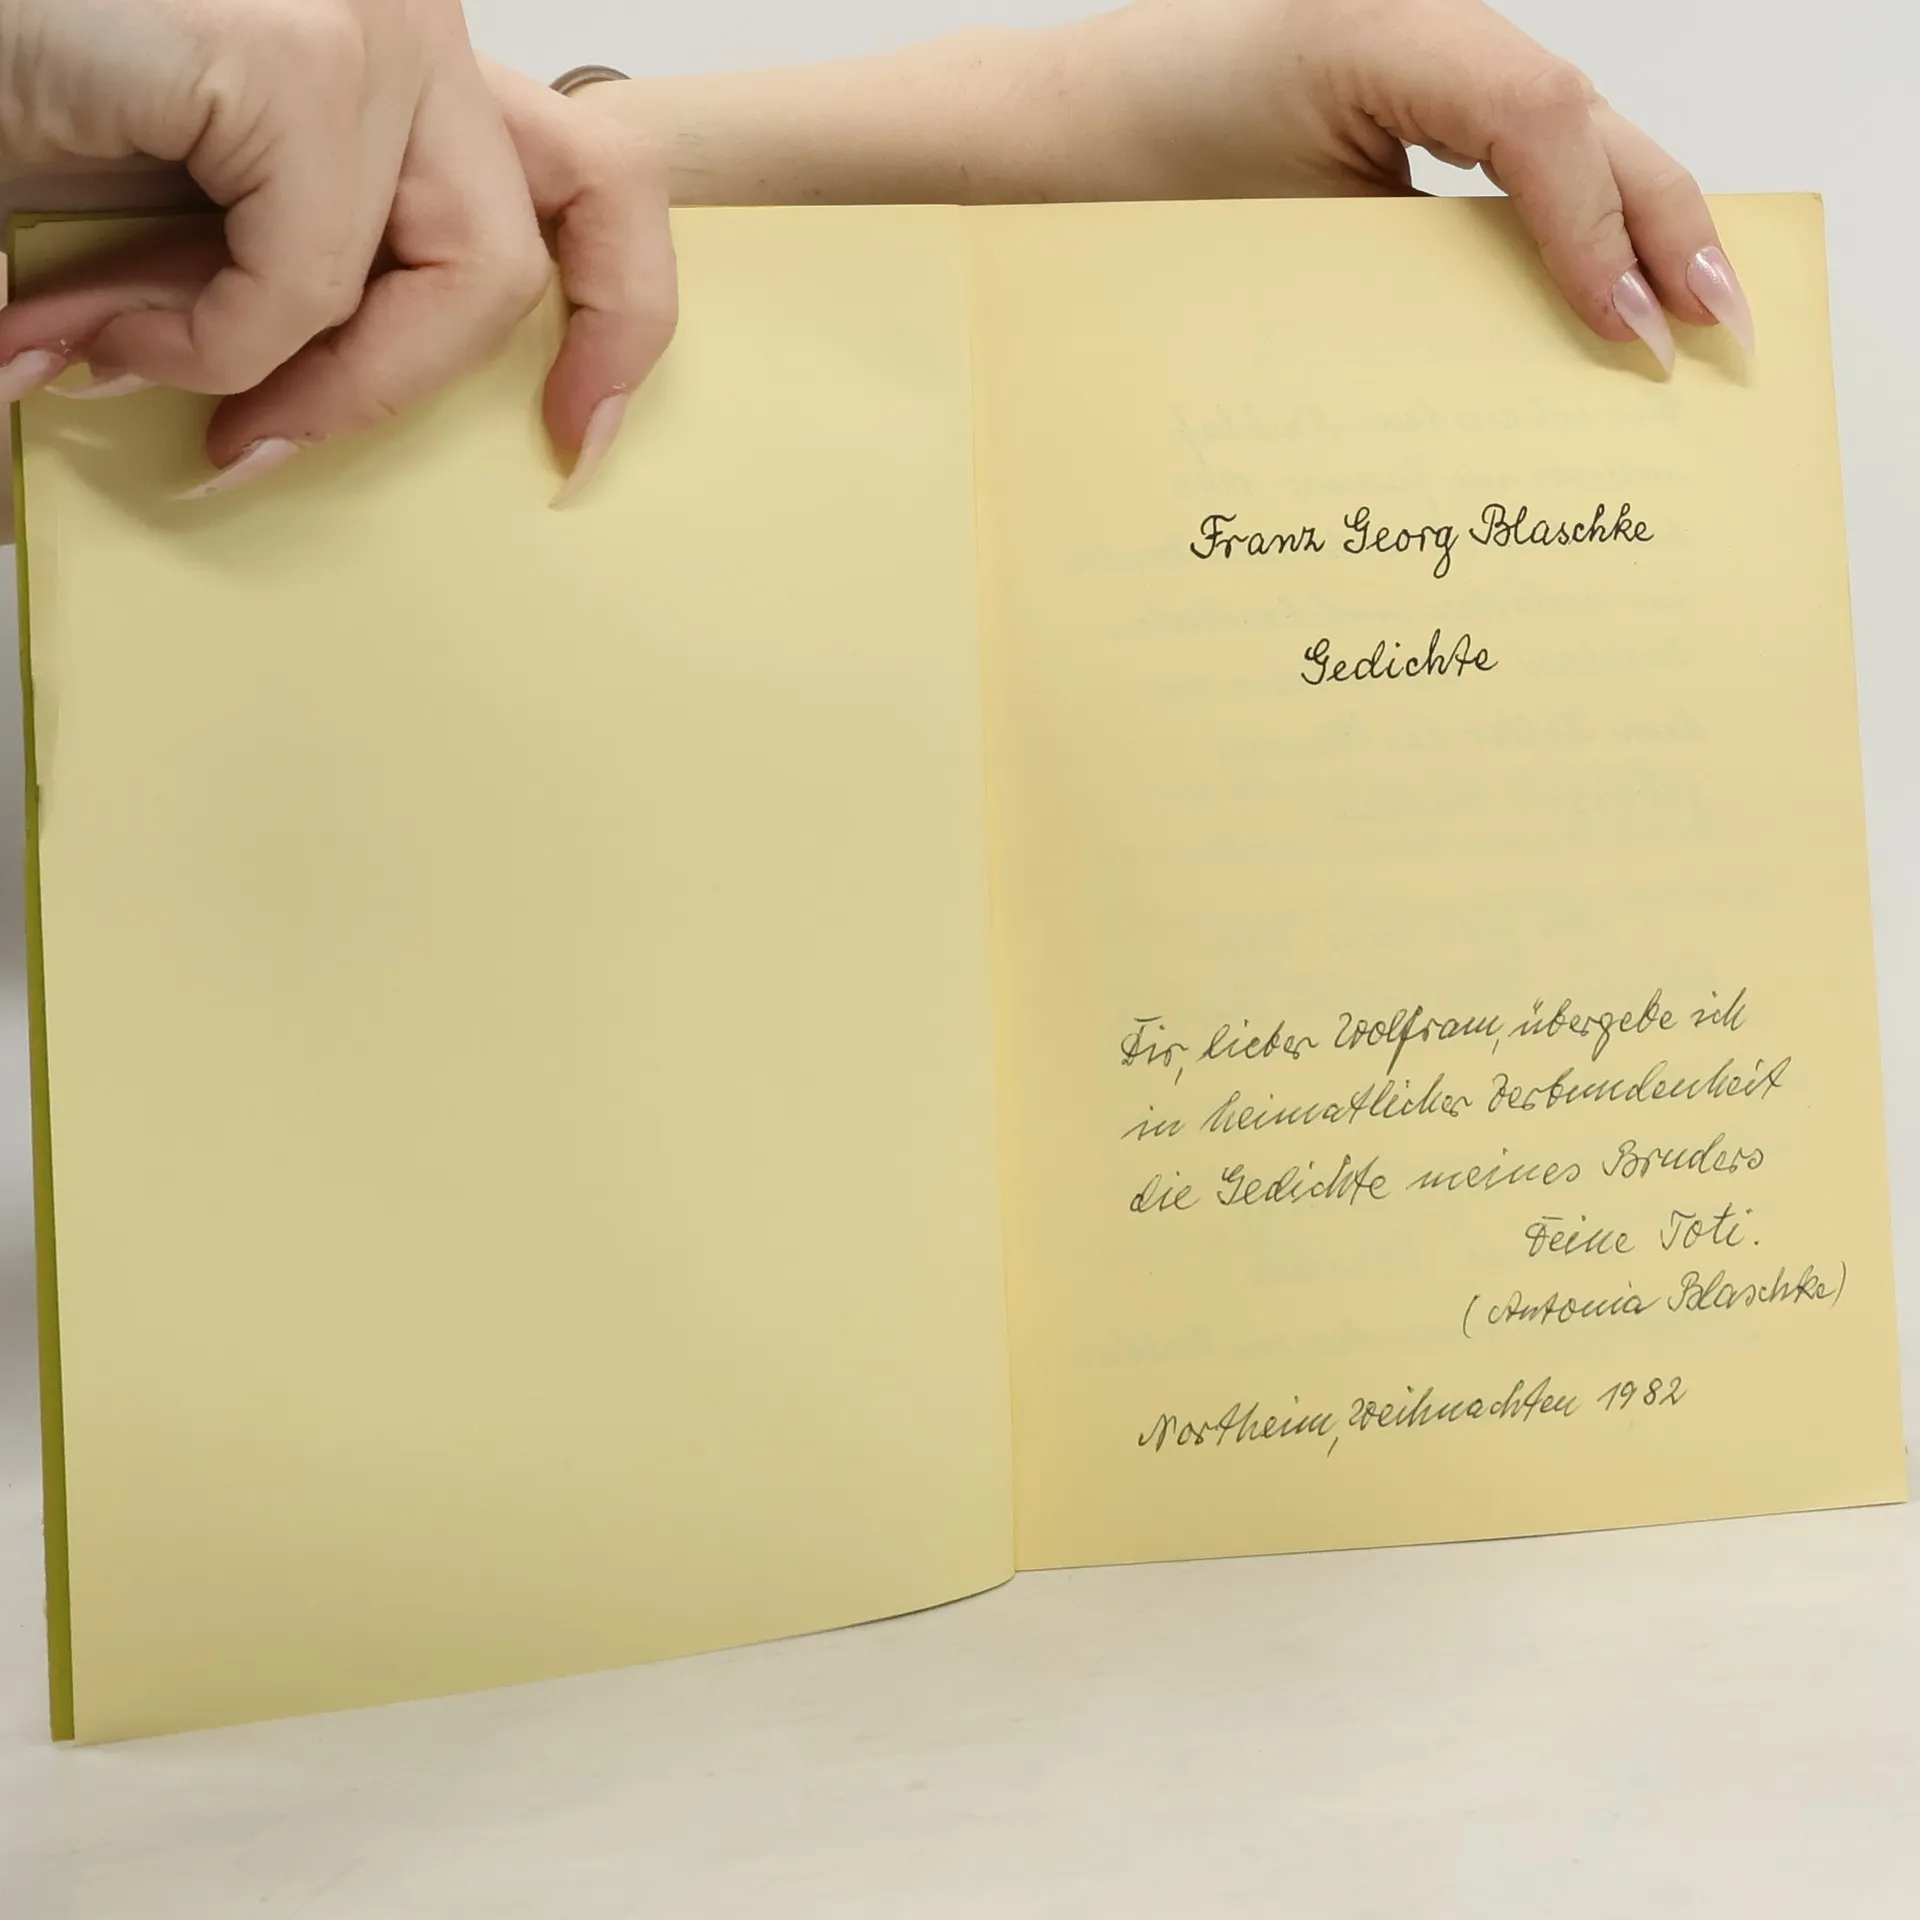 Franz Georg Blaschke
Gedichte
Dir, lieber Wolfram, übergebe ich
in heimatlicher Verbundenheit
die Gedichte meines Bruders
Deine Toti.
(Antonia Blaschke)
Northeim, Weihnachten 1982